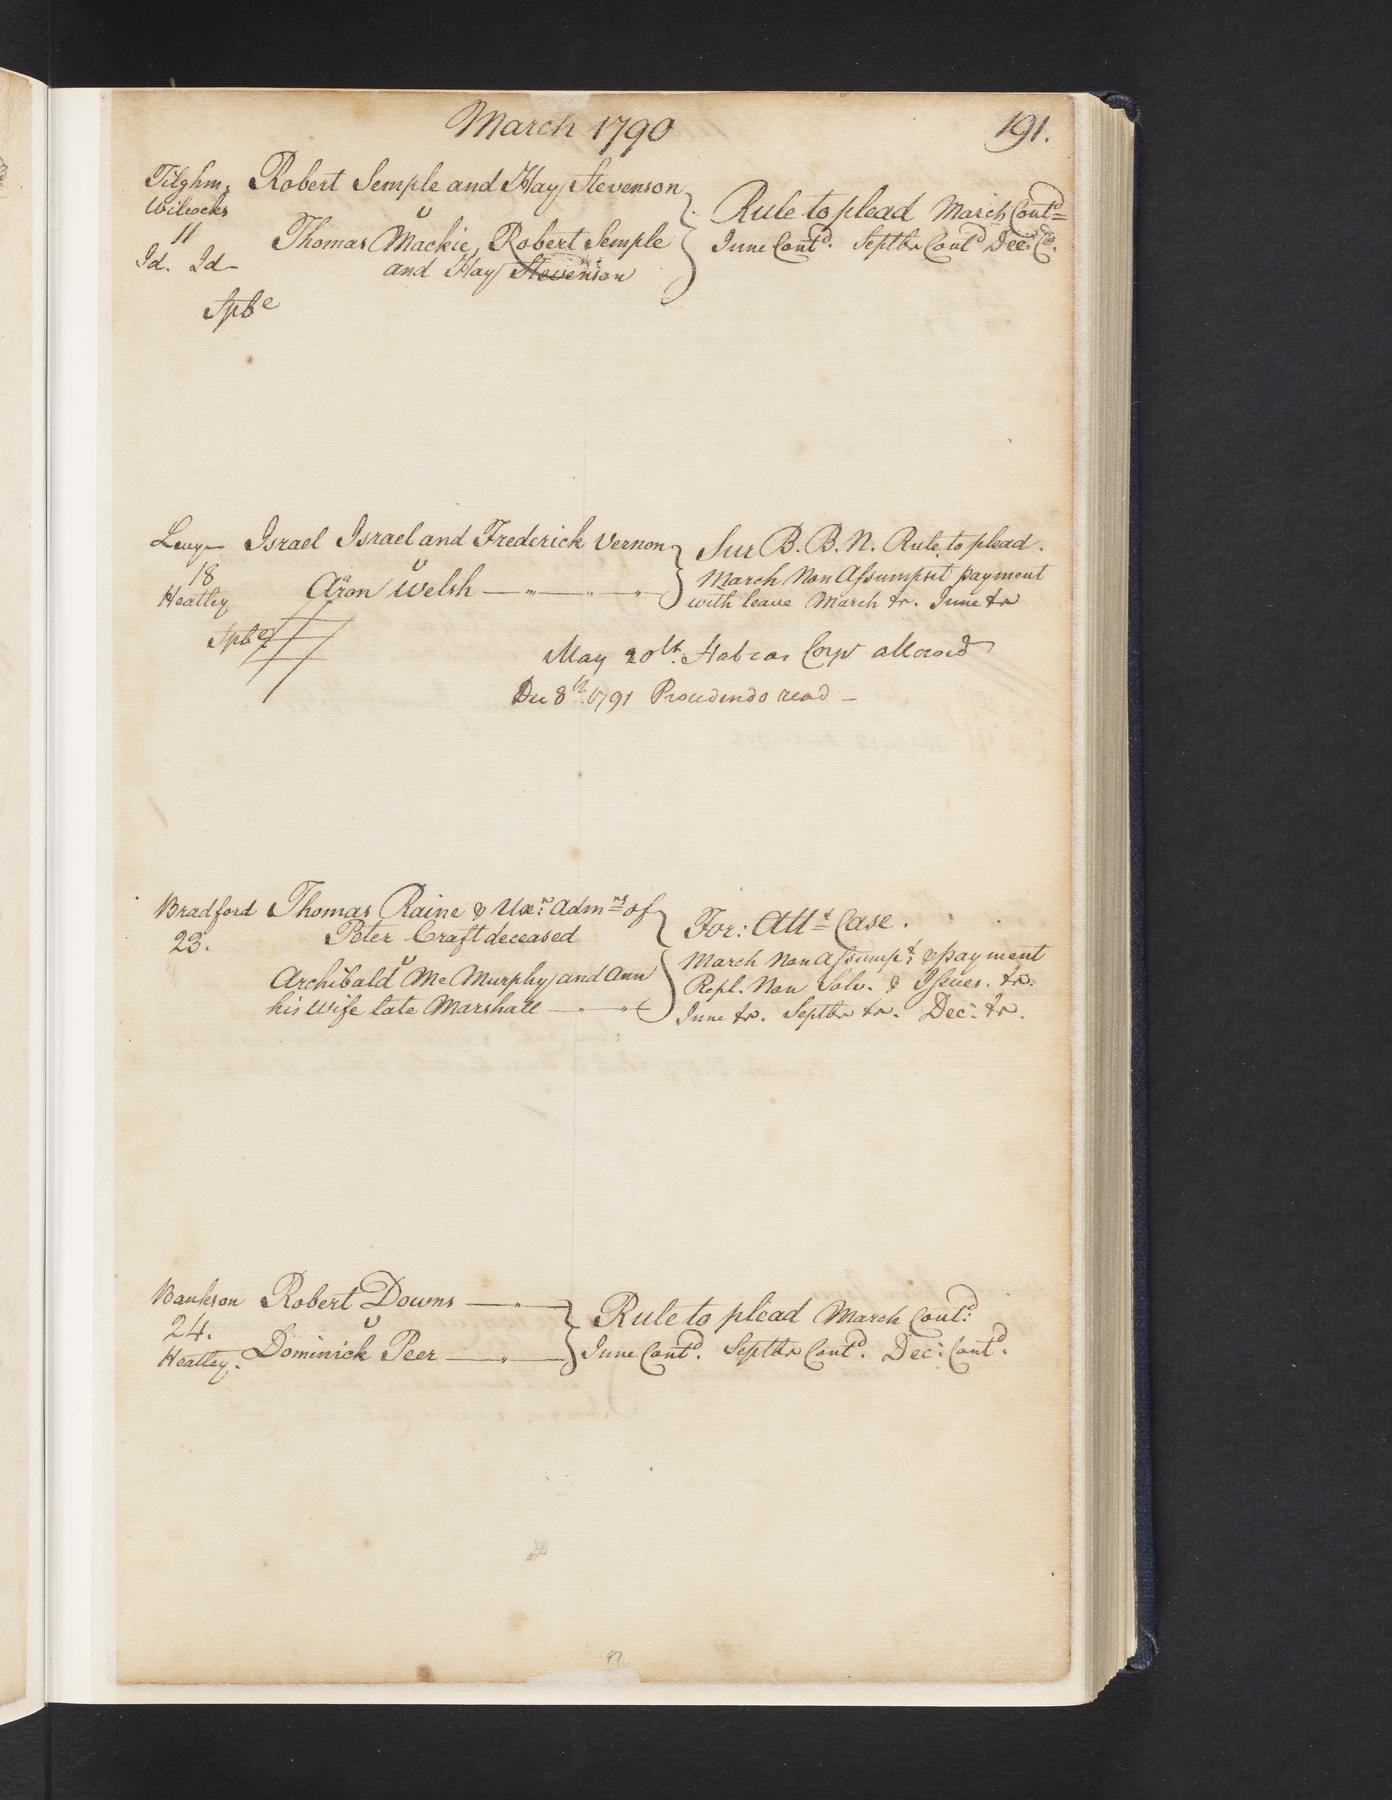 March 1790 191.
Tilghm. Robert Semple and Hay Stevenson
Wilcocks v Rule to plead March Contd
11 Thomas Mackie, Robert Semple June Contd. Septbr Contd Dec. Cd.
Id. Id and Hay Stevenson
Spbe
Levy Israel Israel and Frederick Vernon Sur B. B. N. Rule to plead.
18 v March Non Assumpsit payment
Heatley Aron Welsh with leave March tr. June tr
Spbe
May 20th. Habeas Corp allowed
Dec 8th. 1791 Procedendo read
Bradford Thomas Raine & Uxr. Admrs of For: Attt Case.
23. Peter Craft deceased
v March Non Assumpt. & payment
Archibald Mc Murphy and Ann Repl. Non Solv. & Issues. tr.
his Wife late Marshall June tr. Septbr tr. Dec: tr.
Bankson Robert Downs Rule to plead March Contd:
24. v
Heatley. Dominick Peer June Contd. Septbr Contd. Dec: Contd.
97